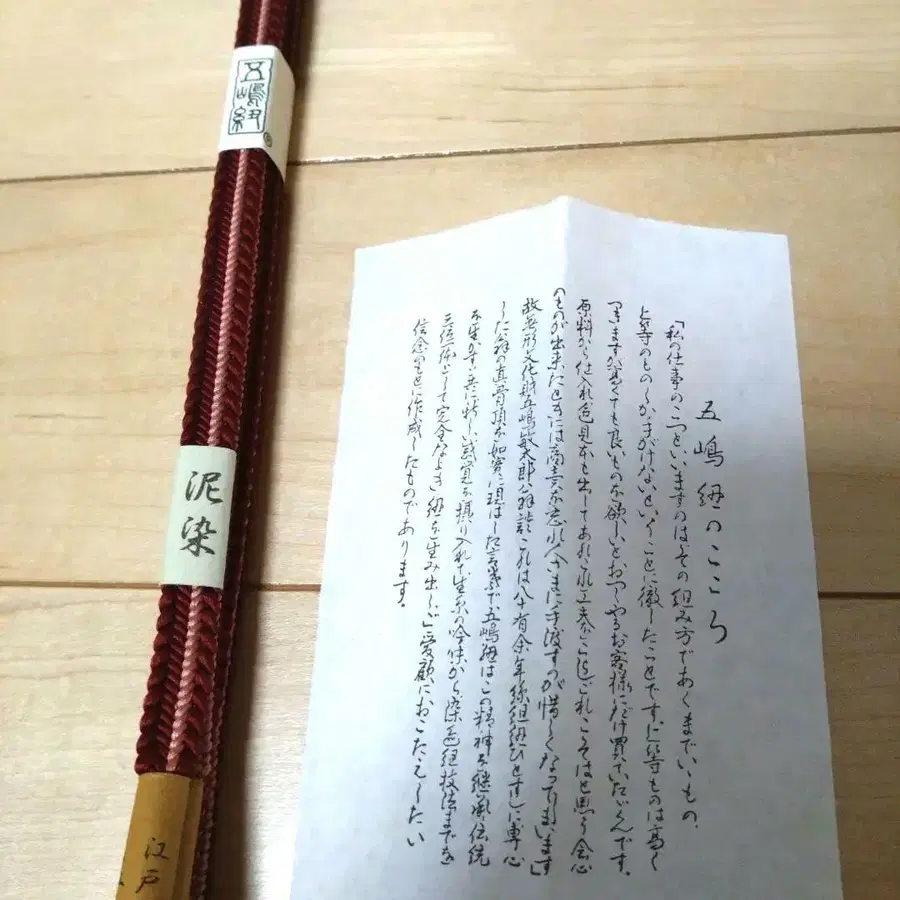 五嶋紐
®
泥染
江戸
五嶋紐のこころ
「私の仕事の二つといいますのはその組み方であくまでいいもの、
上等のものしか手がけないということに徹したことです。上等ものは高く
つきますが高くても良いものを欲しいとおっしゃるお客様にだけ買っていただくんです。
原料から仕入れ色見本も出してあれこれ工夫をこらしこれこそはと思う会心
のものが出来たときには商売を忘れ人さまに手渡すのが惜しくなってしまいます」
故無形文化財五嶋敏太郎翁談 これは八十有余年絲組紐ひとすじに専心
した翁の真骨頂を如実に現はした言葉で五嶋紐はこの精神を継承伝統
を生かす共に新しい感覚を採り入れて生糸の吟味から染色組技法までを
三位一体として完全なよき紐を生み出しご愛顧におこたえしたい
信念のもとに作成したものであります。